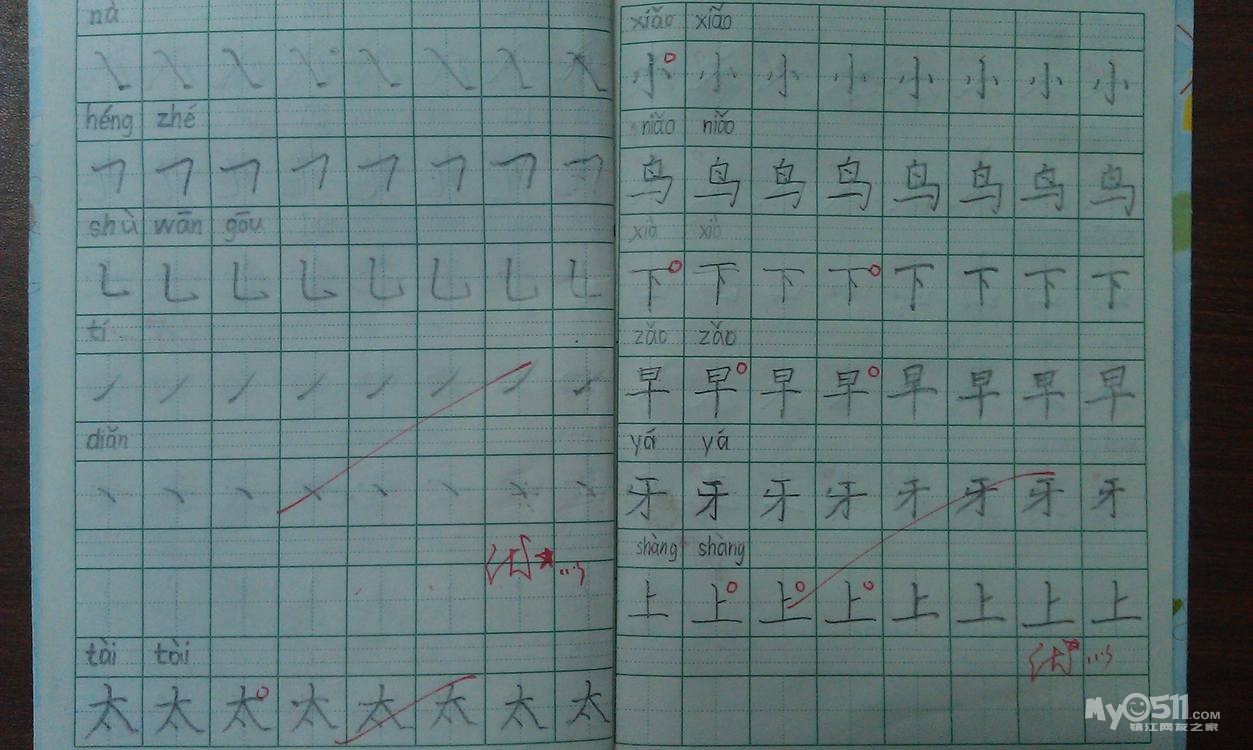 nà
㇏ ㇏ ㇏ ㇏ ㇏ ㇏ ㇏ ㇏
héng zhé
𠃍 𠃍 𠃍 𠃍 𠃍 𠃍 𠃍 𠃍
shù wān gōu
乚 乚 乚 乚 乚 乚 乚 乚
tí
㇀ ㇀ ㇀ ㇀ ㇀ ㇀ ㇀ ㇀
diǎn
丶 丶 丶 丶 丶 丶 丶 丶
优★...
tài tài
太 太 太 太 太 太 太 太
xiǎo xiǎo
小 小 小 小 小 小 小 小
niǎo niǎo
鸟 鸟 鸟 鸟 鸟 鸟 鸟 鸟
xià xià
下 下 下 下 下 下 下 下
zǎo zǎo
早 早 早 早 早 早 早 早
yá yá
牙 牙 牙 牙 牙 牙 牙 牙
shàng shàng
上 上 上 上 上 上 上 上
优★...
My0511.COM
镇江网友之家